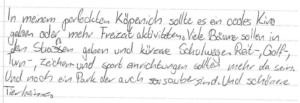 In meinem perfekten Köpenich sollte es ein cooles Kino
geben oder mehr Freizeit aktivitäten. Viele Bäume sollen in
den Strassen geben und kürzere Schulwege. Reit-, Golf-,
Turn-, zeichen und sport einrichtungen sollten mehr da sein.
Und noch ein Park der auch sauber sind. Und schönere
Tierheime.